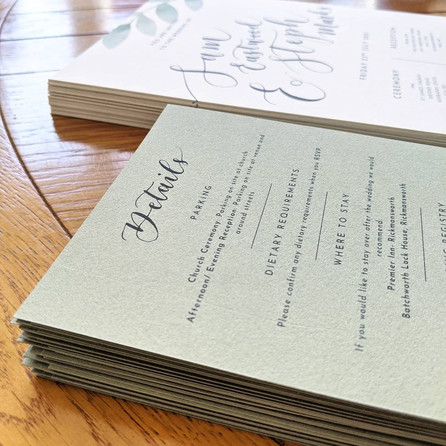 Sam
Eastwood
& Steph
FRIDAY
CEREMONY
RECEPTION
Details
PARKING
Church Ceremony: Parking on site at church
Afternoon/ Evening Reception: Parking on site at venue and
around streets
DIETARY REQUIREMENTS
Please confirm any dietary requirements when you RSVP.
WHERE TO STAY
If you would like to stay over after the wedding we would
recommend:
Premier Inn- Rickmansworth
Batchworth Lock House, Rickmansworth
REGISTRY